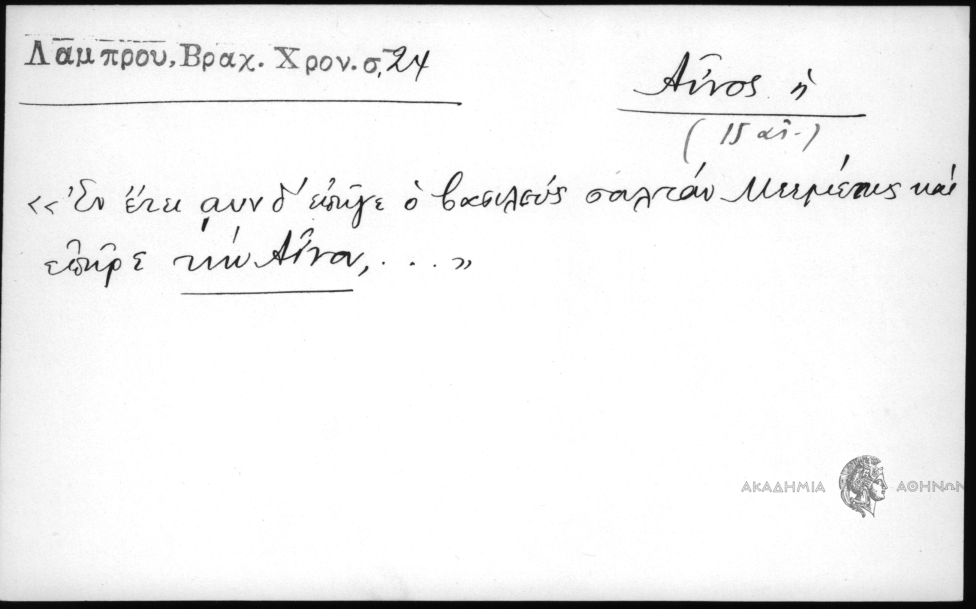 Λάμπρου, Βραχ. Χρον. σ. 24
Αἶνος ἡ
(15 αἰ.)
«Ἐν ἔτει αυνδ' ἐπῆγε ὁ βασιλεύς σολτάν Μεεμέτης καί
ἐπῆρε τήν Αἶνον, . . . »
ΑΚΑΔΗΜΙΑ ΑΘΗΝΩΝ